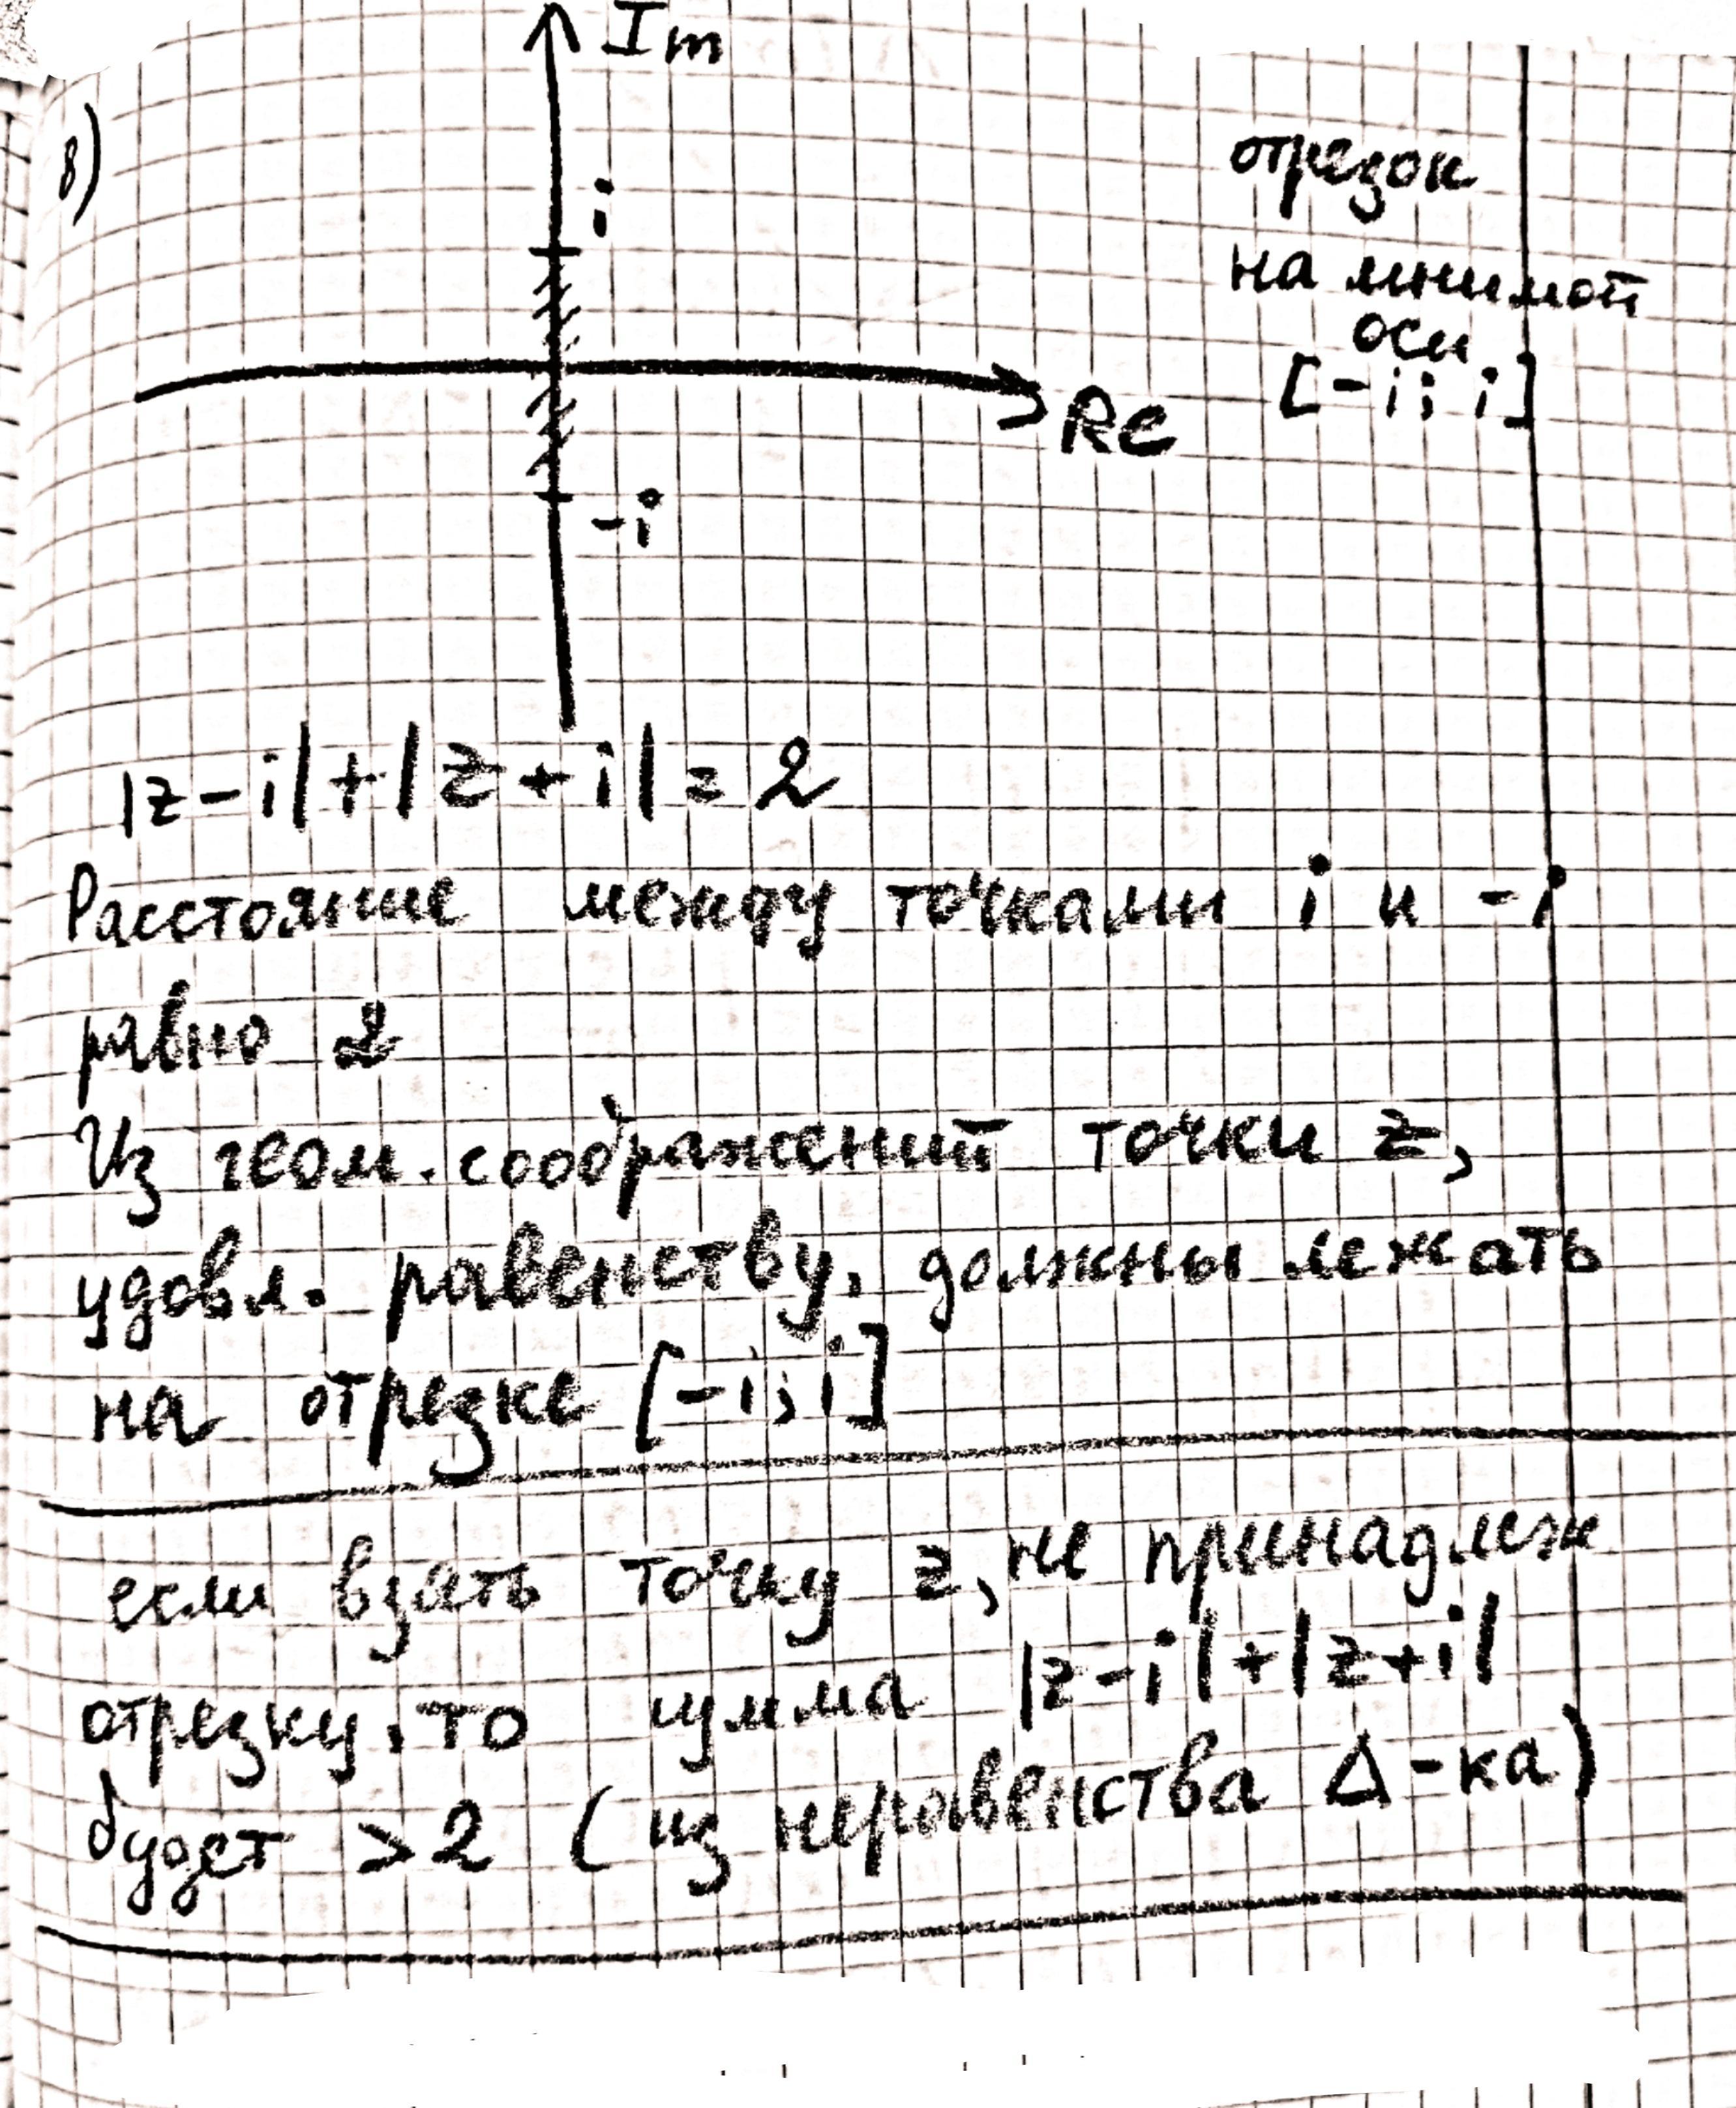 Im
в)
i
отрезок
на мнимой
оси
[-i; i]
Re
-i
|z-i|+|z+i|=2
Расстояние между точками i и -i
равно 2
Из геом. соображений точки z,
удовл. равенству, должны лежать
на отрезке [-i; i]
если взять точку z, не принадлеж
отрезку, то сумма |z-i|+|z+i|
будет >2 (из неравенства Δ-ка)